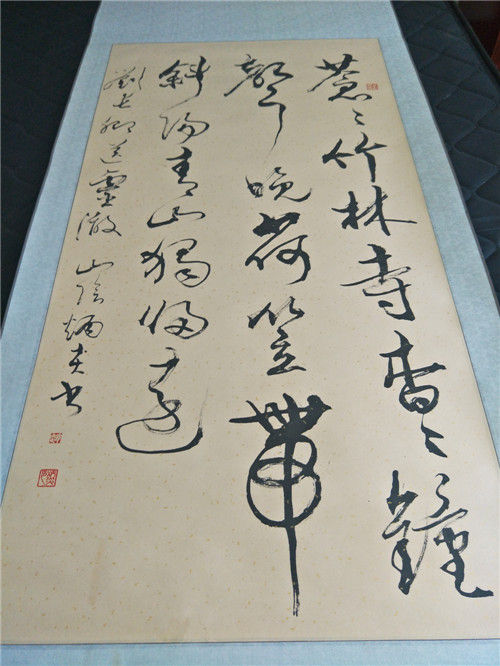 蒼々竹林寺杳々鐘
聲晚荷笠帶
斜陽青山獨歸遠
劉長卿送靈澈 山陰炳书